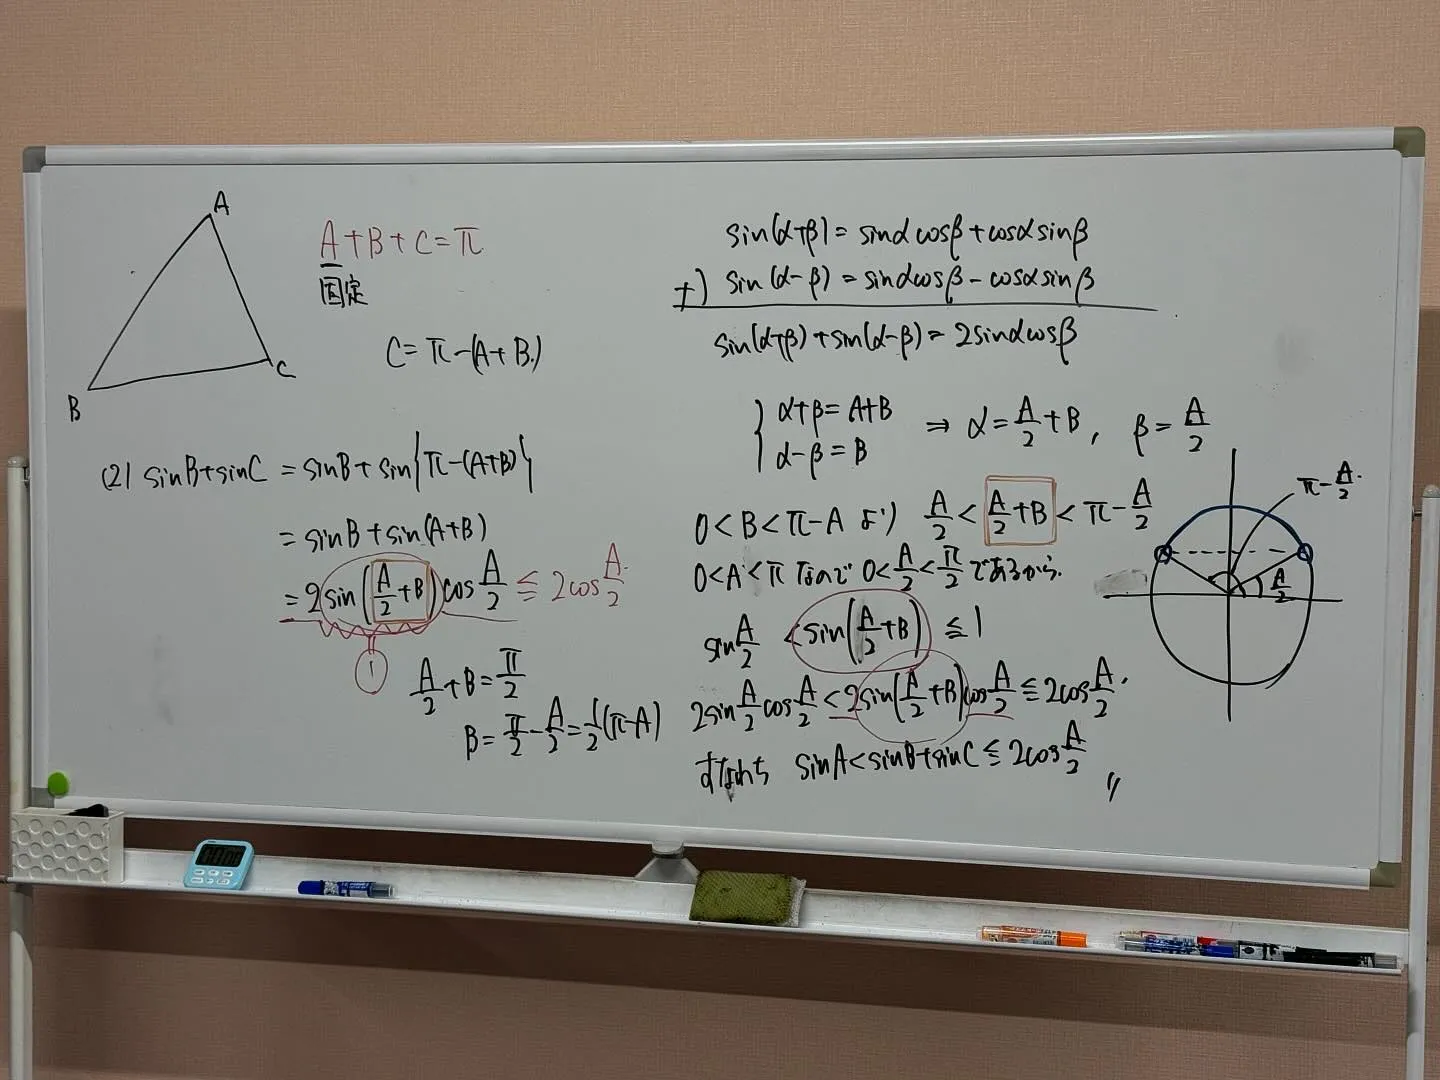 A
B
C
A+B+C=π
固定
C=π-(A+B)
(2) sinB+sinC = sinB+sin{π-(A+B)}
= sinB+sin(A+B)
= 2sin(A/2+B)cos A/2 ≦ 2cos A/2.
1
A/2+B=π/2
B=π/2-A/2=1/2(π-A)
sin(α+β)=sinαcosβ+cosαsinβ
+) sin(α-β)=sinαcosβ-cosαsinβ
sin(α+β)+sin(α-β)=2sinαcosβ
{α+β=A+B
α-β=B
⇒ α=A/2+B, β=A/2
0<B<π-A より A/2<A/2+B<π-A/2
0<A<π なので 0<A/2<π/2 であるから.
sin A/2 <sin(A/2+B) ≦1
2sin A/2 cos A/2 <2sin(A/2+B)cos A/2 ≦2cos A/2.
すなわち sinA<sinB+sinC≦2cos A/2 〃
π-A/2.
A/2